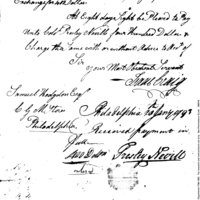 Exchange for 400 Dollars
At Eight days Sight be Pleased to Pay
unto Colo Presley Nevill four Hundred Dollars &
Charge the same with or without Advice to Acct of
Sir
your Most Obedient Servant
Isaac Craig
Samuel Hodgdon Esqr
Philadelphia
Philadelphia 1793
Received payment in
full
400 Dollars
Presley Nevill